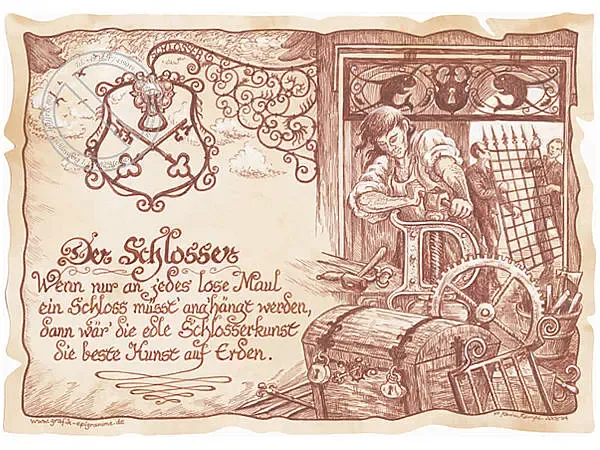 SCHLOSSER
Der Schlosser
Wenn nur an jedes lose Maul
ein Schloss müsst' ang'hängt werden,
dann wär' die edle Schlosserkunst
die beste Kunst auf Erden.
www.grafik-epigramme.de